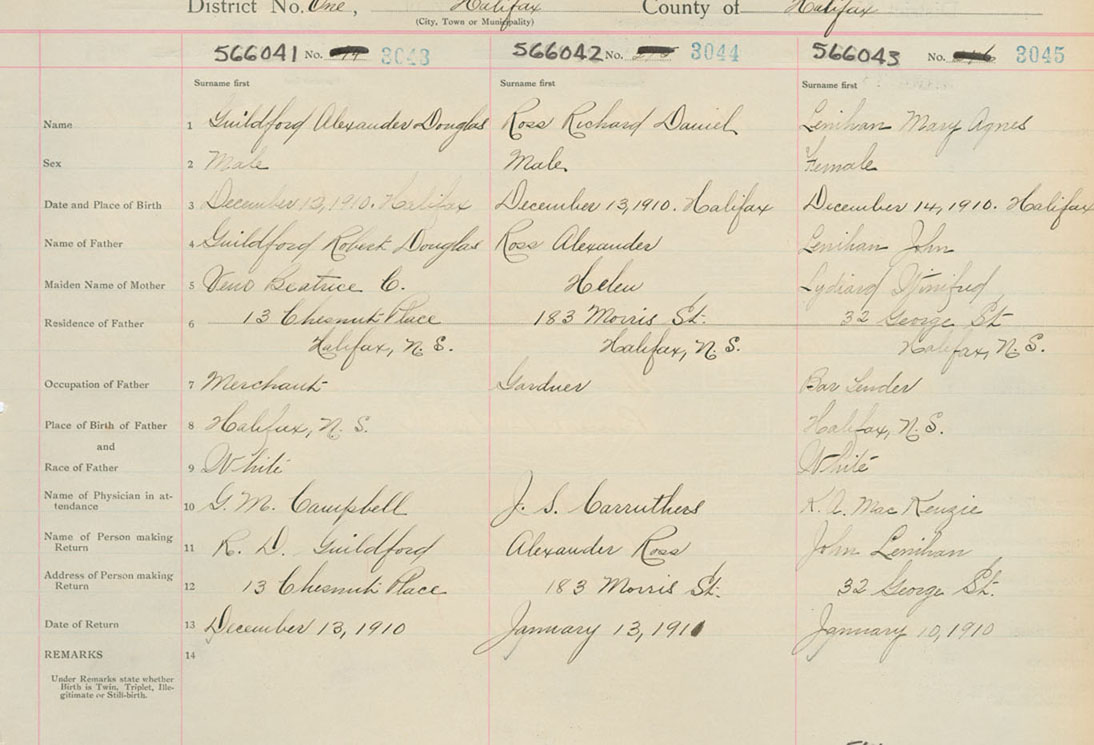 District No. One, Halifax County of Halifax
(City, Town or Municipality)
566041 No. 3043 566042 No. 3044 566043 No. 3045
Surname first Surname first Surname first
Name 1 Guildford Alexander Douglas Ross Richard Daniel Lenihan Mary Agnes
Sex 2 Male Male Female
Date and Place of Birth 3 December 13, 1910. Halifax December 13, 1910. Halifax December 14, 1910. Halifax
Name of Father 4 Guildford Robert Douglas Ross Alexander Lenihan John
Maiden Name of Mother 5 Veno Beatrice C. Helen Lydiard Winifred
Residence of Father 6 13 Chesnut Place 183 Morris St. 32 George St
Halifax, N. S. Halifax, N. S. Halifax, N. S.
Occupation of Father 7 Merchant Gardner Bar Tender
Place of Birth of Father 8 Halifax, N. S. Halifax, N. S.
and
Race of Father 9 White White
Name of Physician in at-
tendance 10 G. M. Campbell J. S. Carruthers K. A. Mac Kenzie
Name of Person making
Return 11 R. D. Guildford Alexander Ross John Lenihan
Address of Person making
Return 12 13 Chesnut Place 183 Morris St. 32 George St.
Date of Return 13 December 13, 1910 January 13, 1911 January 10, 1910
REMARKS 14
Under Remarks state whether
Birth is Twin, Triplet, Ille-
gitimate or Still-birth.